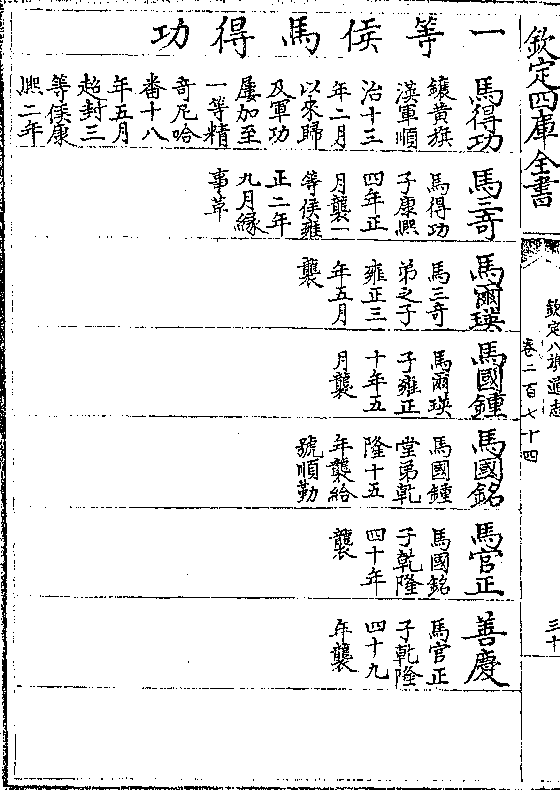 欽定四庫全書
欽定八旗通志
卷二百七十四
三十
一等侯馬得功
馬得功
鑲黄旗
漢軍順
治十三
年二月
以來歸
及軍功
屢加至
一等精
奇尼哈
番十八
年五月
超封三
等侯康
熙二年
馬三奇
馬得功
子康熙
四年正
月襲一
等侯雍
正二年
九月縁
事革
馬爾瑛
馬三奇
弟之子
雍正三
年五月
襲
馬國鍾
馬爾瑛
子雍正
十年五
月襲
馬國銘
馬國鍾
堂弟乾
隆十五
年襲給
號順勤
馬官正
馬國銘
子乾隆
四十年
襲
善慶
馬官正
子乾隆
四十九
年襲